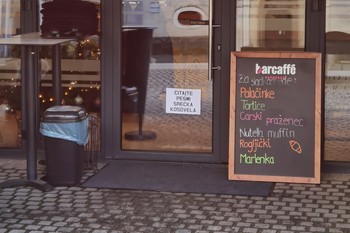 ČITAJTE
PESMI
SREČKA
KOSOVELA
barcaffè
Za
Palačinke
Tortice
Carski praženec
Nutella muffin
Rogljički
Marlenka